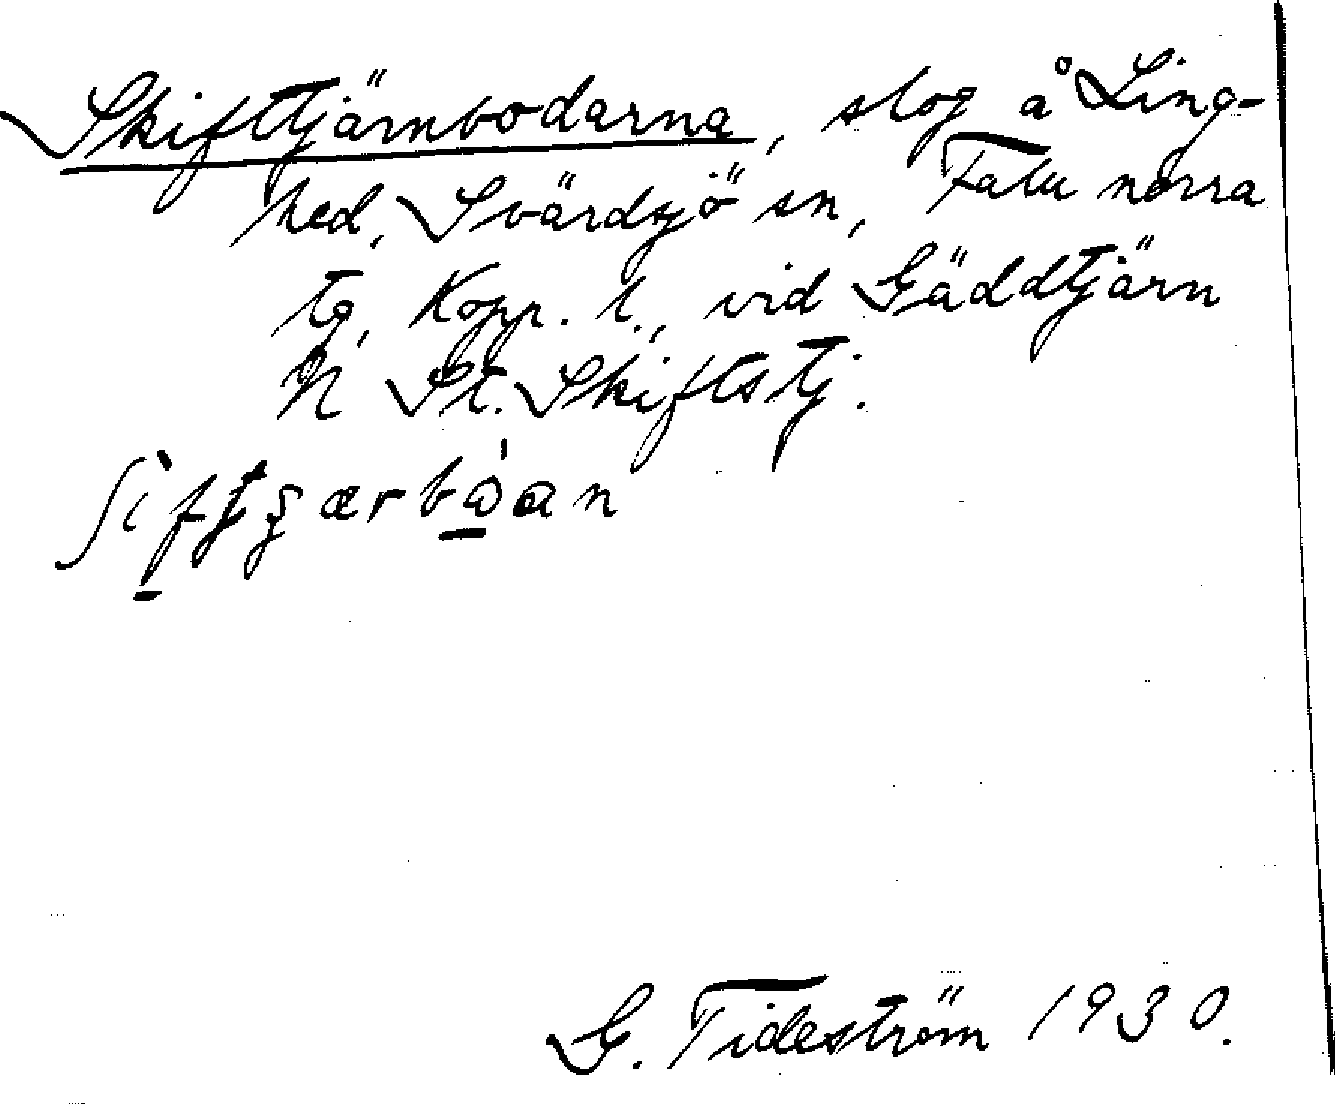 Skifttjärnbodarna, slog å Ling-
hed, Svärdsjö sn, Falu norra
tg, Kopp. l., vid Gäddtjärn
N St. Skiftstj.
G. Tideström 1930.